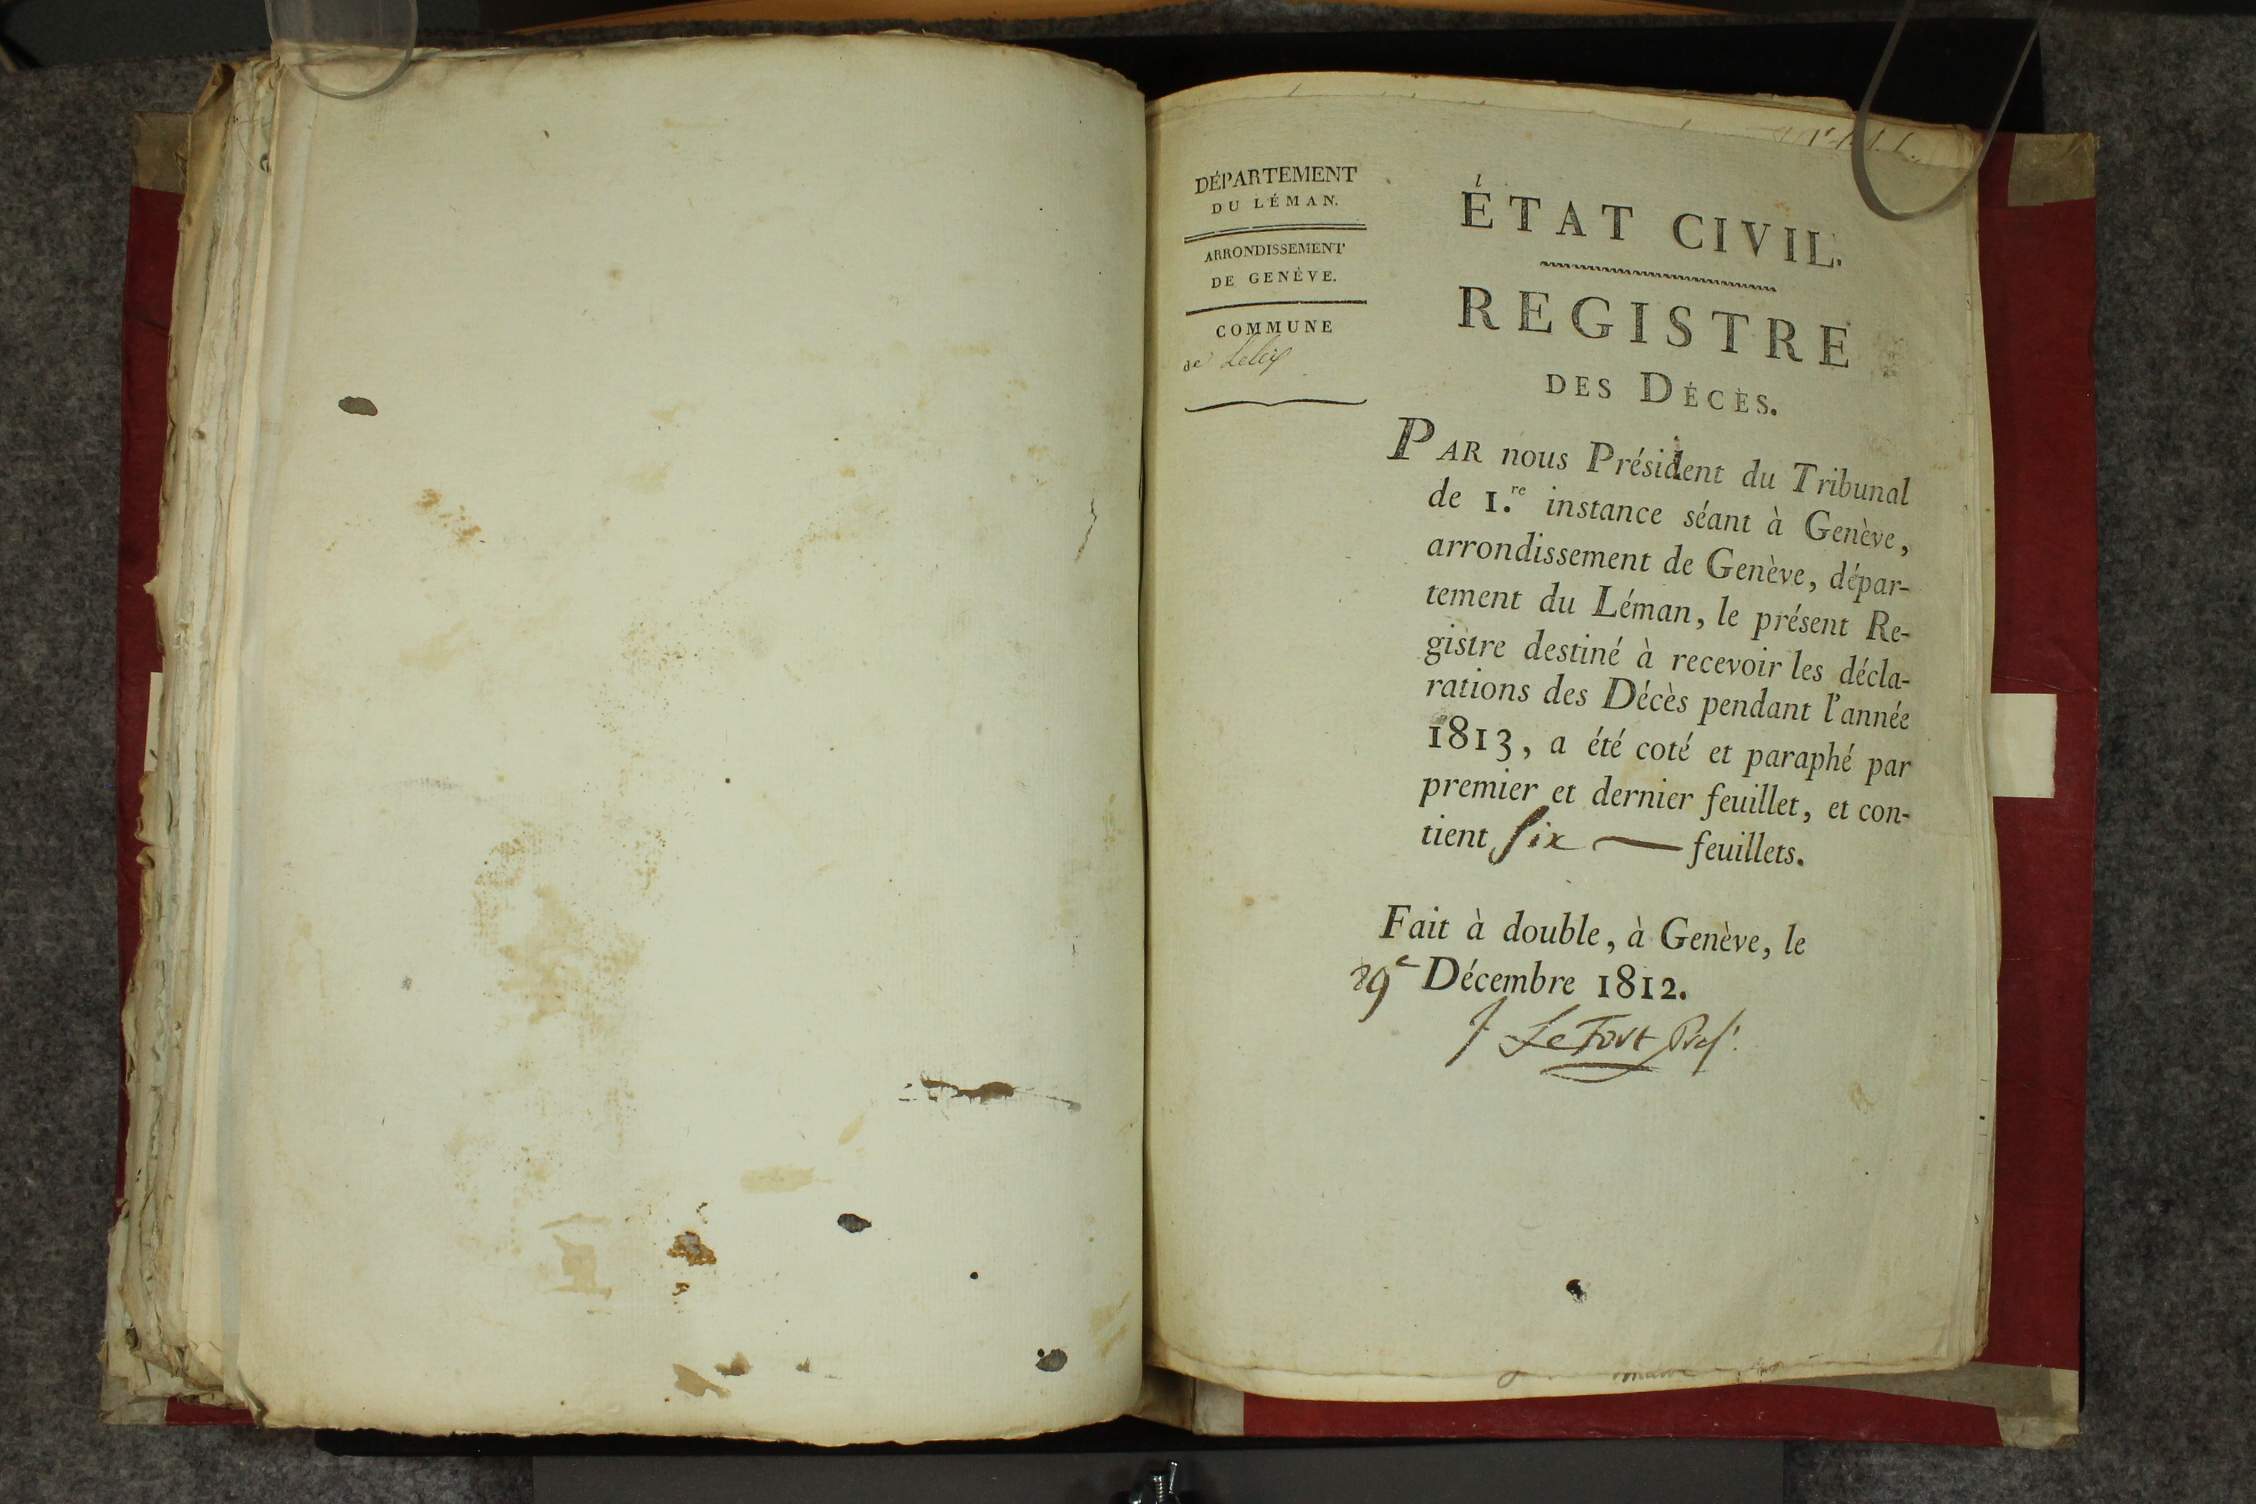 DÉPARTEMENT
DU LÉMAN.
ARRONDISSEMENT
DE GENÈVE.
COMMUNE
de Lelex
ÉTAT CIVIL.
REGISTRE
DES DÉCÈS.
PAR nous Président du Tribunal
de 1.re instance séant à Genève,
arrondissement de Genève, dépar-
tement du Léman, le présent Re-
gistre destiné à recevoir les décla-
rations des Décès pendant l'année
1813, a été coté et paraphé par
premier et dernier feuillet, et con-
tient six feuillets.
Fait à double, à Genève, le
29e Décembre 1812.
J LeFort Prést.